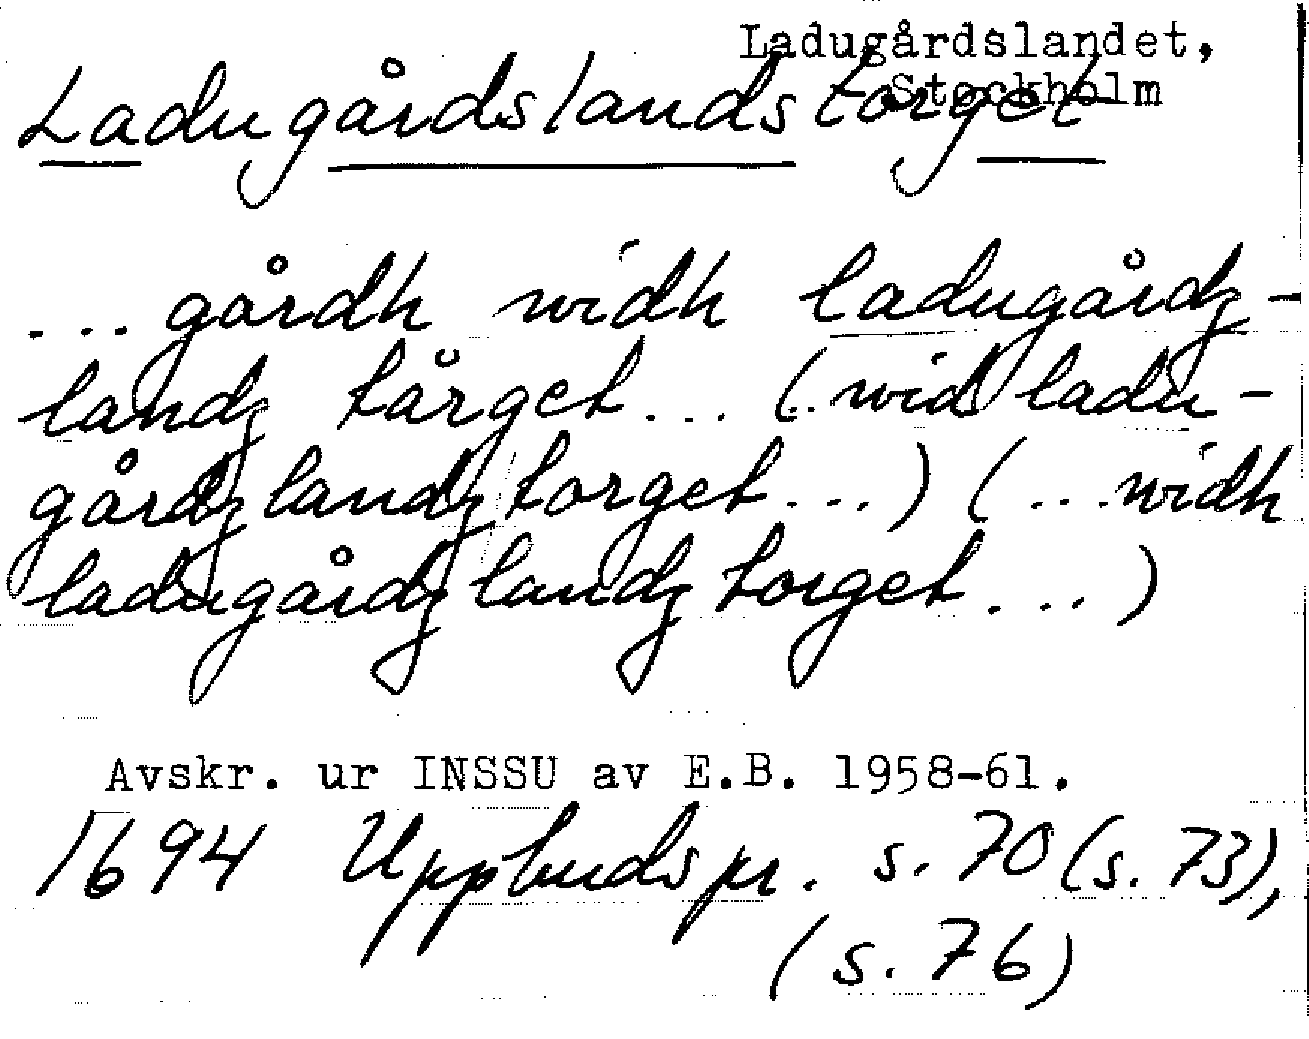 Ladugårdslandet,
Stockholm
Ladugårdslandstorget
... gårdh widh ladugårdz-
landz tårget... (..wid ladu-
gårdzlandz torget...) (...widh
ladugårdzlandz torget...)
Avskr. ur INSSU av E.B. 1958-61.
1694 Uppbudspr. s. 70 (s. 73),
(s. 76)